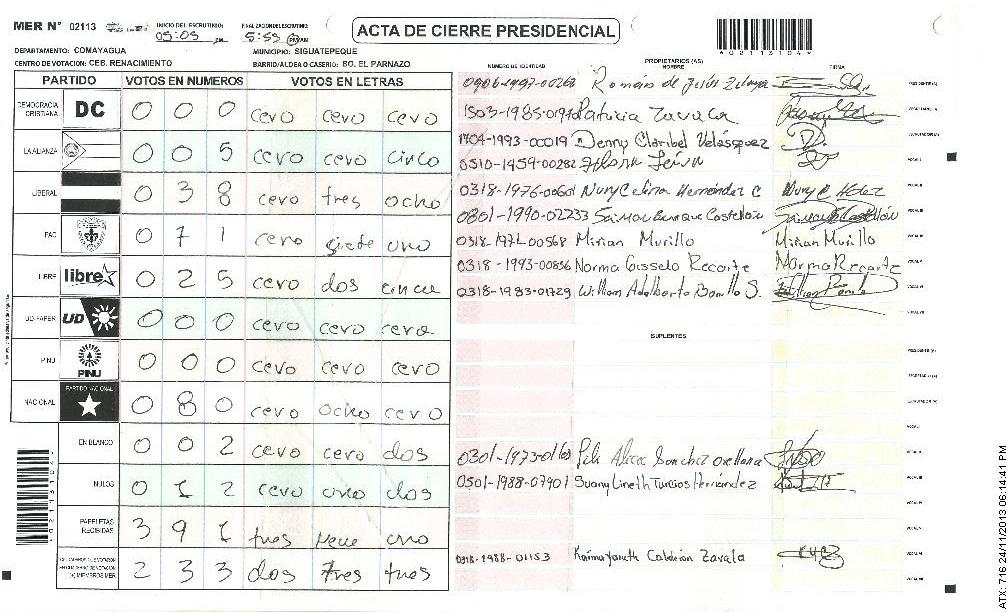 MER N° 02113
INICIO DEL ESCRUTINIO: 05:05 PM
FINALIZACION DEL ESCRUTINIO: 5:55 PM AM
ACTA DE CIERRE PRESIDENCIAL
02113104
DEPARTAMENTO: COMAYAGUA
MUNICIPIO: SIGUATEPEQUE
CENTRO DE VOTACION: CEB. RENACIMIENTO
BARRIO/ALDEA O CASERIO: BO. EL PARNAZO
PARTIDO VOTOS EN NUMEROS VOTOS EN LETRAS
DEMOCRACIA CRISTIANA DC 0 0 0 cero cero cero
LA ALIANZA 0 0 5 cero cero cinco
LIBERAL 0 3 8 cero tres ocho
PAC 0 7 1 cero siete uno
LIBRE libre 0 2 5 cero dos cinco
UD-FAPER UD 0 0 0 cero cero cero
PINU PINU 0 0 0 cero cero cero
NACIONAL PARTIDO NACIONAL 0 8 0 cero ocho cero
EN BLANCO 0 0 2 cero cero dos
NULOS 0 1 2 cero uno dos
PAPELETAS RECIBIDAS 3 9 1 tres nueve uno
2 3 3 dos tres tres
NUMERO DE IDENTIDAD
PROPIETARIOS (AS)
NOMBRE
FIRMA
Román de Jesús
PRESIDENTE (A)
Patricia Zavala
SECRETARIO (A)
1704-1993-00019 Denny Claribel Velásquez
ESCRUTADOR (A)
0510-1959-00282
VOCAL I
0318-1976-00601 Nury Celina Hernández C
VOCAL II
0801-1990-02233
VOCAL III
0318-1971-00568 Mirian Murillo Mirian Murillo
VOCAL IV
0318-1993-00856 Norma Recarte
VOCAL V
0318-1983-01729 William Adalberto Bonilla S.
VOCAL VI
VOCAL VII
SUPLENTES
PRESIDENTE (A)
SECRETARIO (A)
ESCRUTADOR (A)
VOCAL I
Sanchez Orellana
VOCAL II
0501-1988-07901 Suany Lineth Turcios Hernandez
VOCAL III
VOCAL IV
VOCAL V
0318-1988-01153 Karina Yaneth Calderón Zavala
VOCAL VI
VOCAL VII
02113104
ATX: 716 24/11/2013 06:14:41 PM